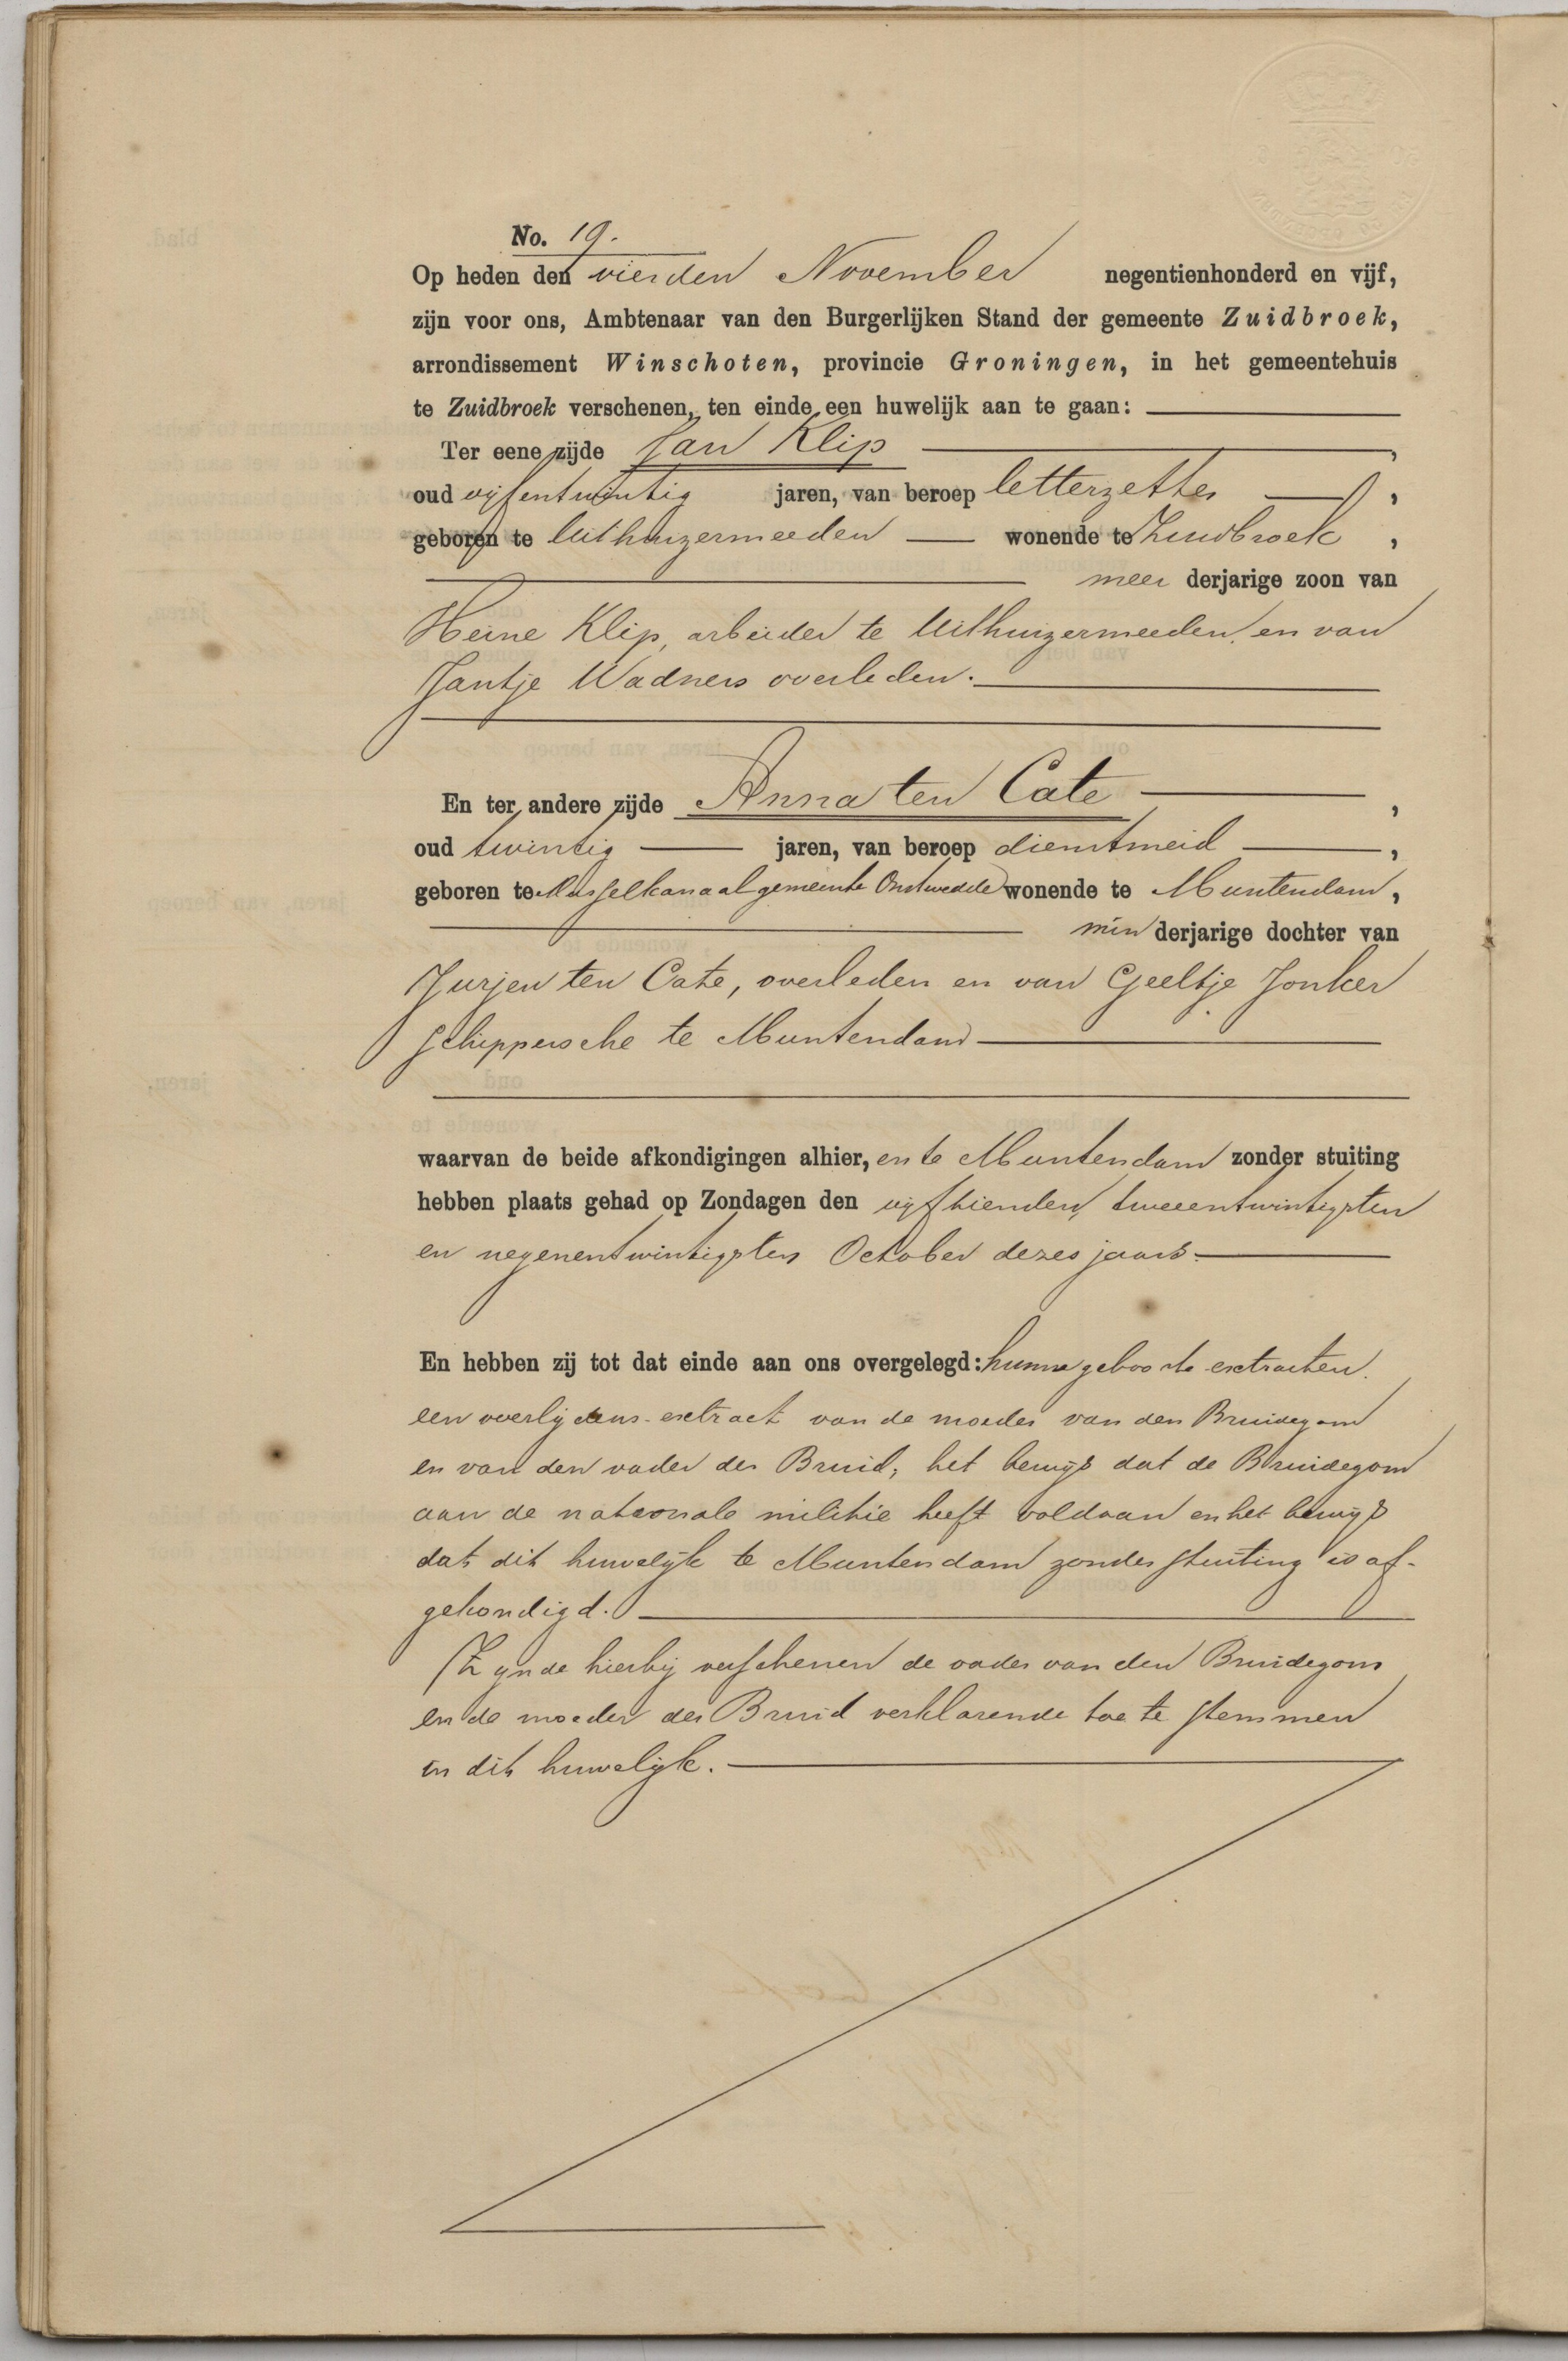 No. 19.
Op heden den vierden November negentienhonderd en vijf,
zijn voor ons, Ambtenaar van den Burgerlijken Stand der gemeente Zuidbroek,
arrondissement Winschoten, provincie Groningen, in het gemeentehuis
te Zuidbroek verschenen, ten einde een huwelijk aan te gaan:
Ter eene zijde Jan Klip,
oud vijfentwintig jaren, van beroep letterzetter,
geboren te Uithuizermeeden wonende te Zuidbroek,
meer derjarige zoon van
Heine Klip, arbeider te Uithuizermeeden, en van
Jantje Wadners overleden.
En ter andere zijde Anna ten Cate,
oud twintig jaren, van beroep dienstmeid,
geboren te Musselkanaal gemeente Onstwedde wonende te Muntendam,
min derjarige dochter van
Jurjen ten Cate, overleden en van Geeltje Jonker
schippersche te Muntendam
waarvan de beide afkondigingen alhier, en te Muntendam zonder stuiting
hebben plaats gehad op Zondagen den vijftienden, tweeentwintigsten
en negenentwintigsten October dezes jaars.
En hebben zij tot dat einde aan ons overgelegd: hunne geboorte-extracten,
een overlijdens-extract van de moeder van den Bruidegom
en van den vader der Bruid, het bewijs dat de Bruidegom
aan de nationale militie heeft voldaan en het bewijs
dat dit huwelijk te Muntendam zonder stuiting is af-
gekondigd.
Zijnde hierbij verschenen de vader van den Bruidegom
en de moeder der Bruid verklarende toe te stemmen
in dit huwelijk.